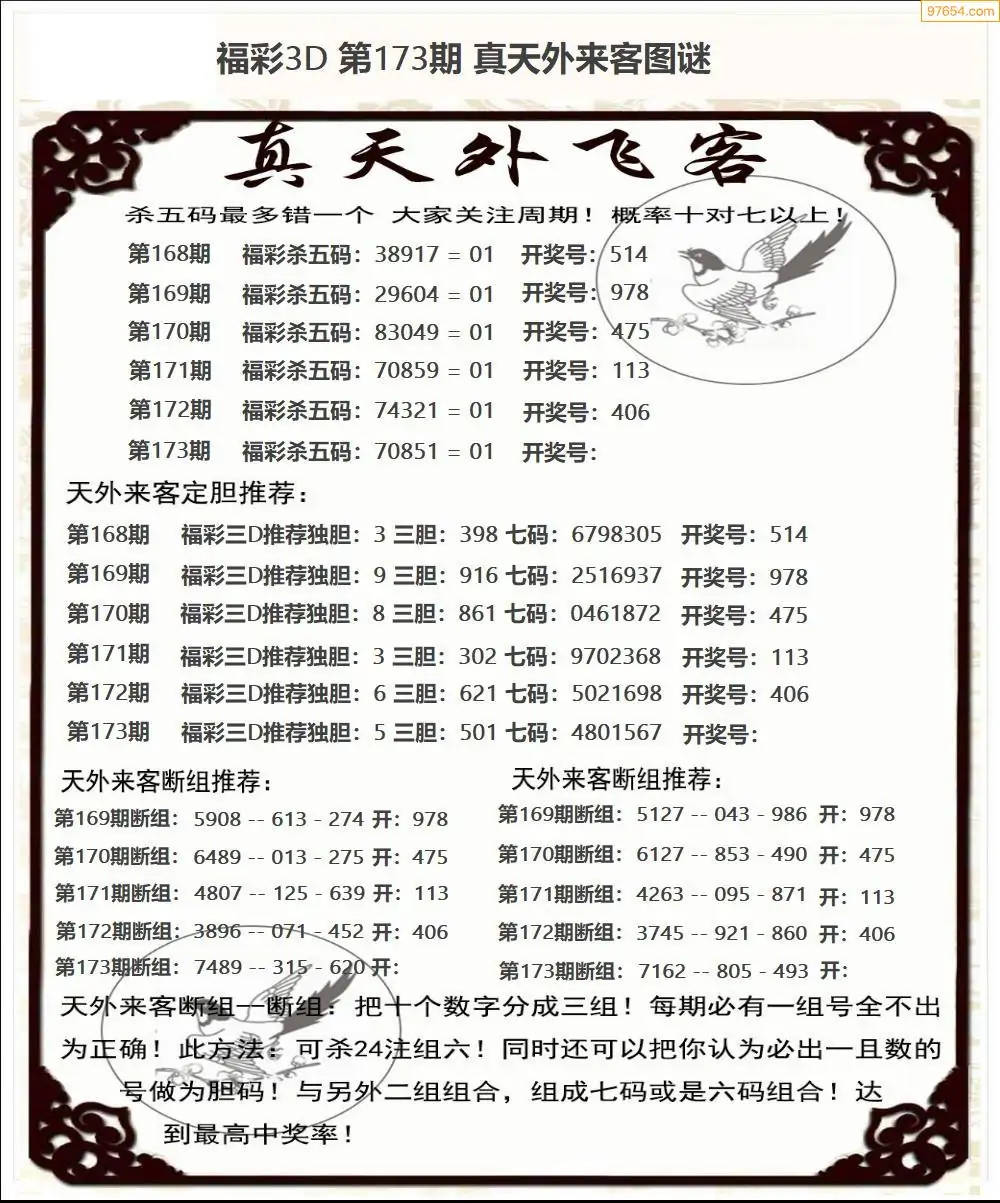 97654.com
福彩3D 第173期 真天外来客图谜
真天外飞客
杀五码最多错一个 大家关注周期！概率十对七以上！
第168期 福彩杀五码：38917 = 01 开奖号：514
第169期 福彩杀五码：29604 = 01 开奖号：978
第170期 福彩杀五码：83049 = 01 开奖号：475
第171期 福彩杀五码：70859 = 01 开奖号：113
第172期 福彩杀五码：74321 = 01 开奖号：406
第173期 福彩杀五码：70851 = 01 开奖号：
天外来客定胆推荐：
第168期 福彩三D推荐独胆：3 三胆：398 七码：6798305 开奖号：514
第169期 福彩三D推荐独胆：9 三胆：916 七码：2516937 开奖号：978
第170期 福彩三D推荐独胆：8 三胆：861 七码：0461872 开奖号：475
第171期 福彩三D推荐独胆：3 三胆：302 七码：9702368 开奖号：113
第172期 福彩三D推荐独胆：6 三胆：621 七码：5021698 开奖号：406
第173期 福彩三D推荐独胆：5 三胆：501 七码：4801567 开奖号：
天外来客断组推荐：
第169期断组：5908 -- 613 - 274 开：978
第170期断组：6489 -- 013 - 275 开：475
第171期断组：4807 -- 125 - 639 开：113
第172期断组：3896 -- 071 - 452 开：406
第173期断组：7489 -- 315 - 620 开：
天外来客断组推荐：
第169期断组：5127 -- 043 - 986 开：978
第170期断组：6127 -- 853 - 490 开：475
第171期断组：4263 -- 095 - 871 开：113
第172期断组：3745 -- 921 - 860 开：406
第173期断组：7162 -- 805 - 493 开：
天外来客断组一断组：把十个数字分成三组！每期必有一组号全不出
为正确！此方法：可杀24注组六！同时还可以把你认为必出一且数的
号做为胆码！与另外二组组合，组成七码或是六码组合！达
到最高中奖率！